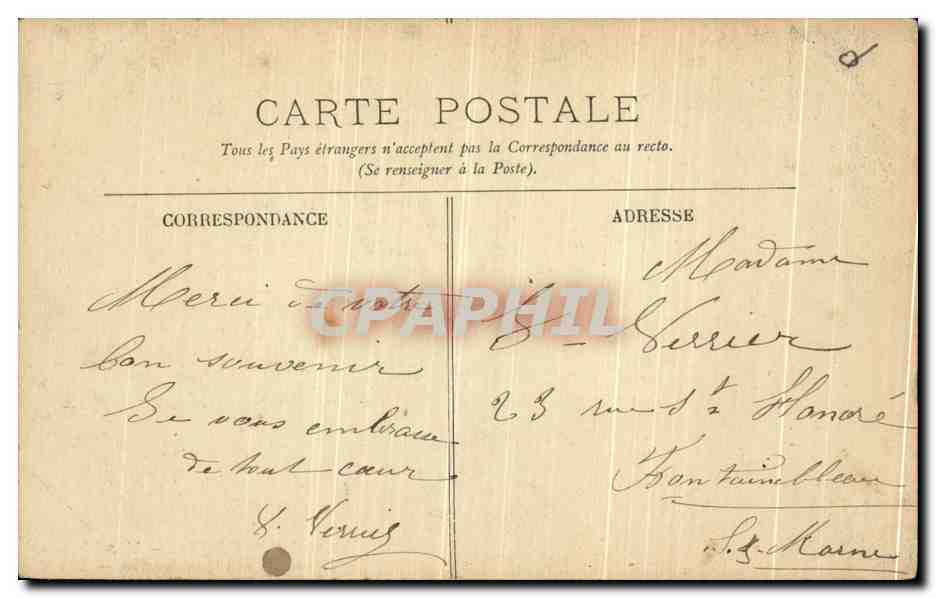 CARTE POSTALE
Tous les Pays étrangers n'acceptent pas la Correspondance au recto.
(Se renseigner à la Poste).
CORRESPONDANCE
Merci de votre
bon souvenir
Je vous embrasse
de tout cœur
ADRESSE
Madame
Verrier
23 rue St Honoré
Fontainebleau
S. & Marne
CPAPHIL